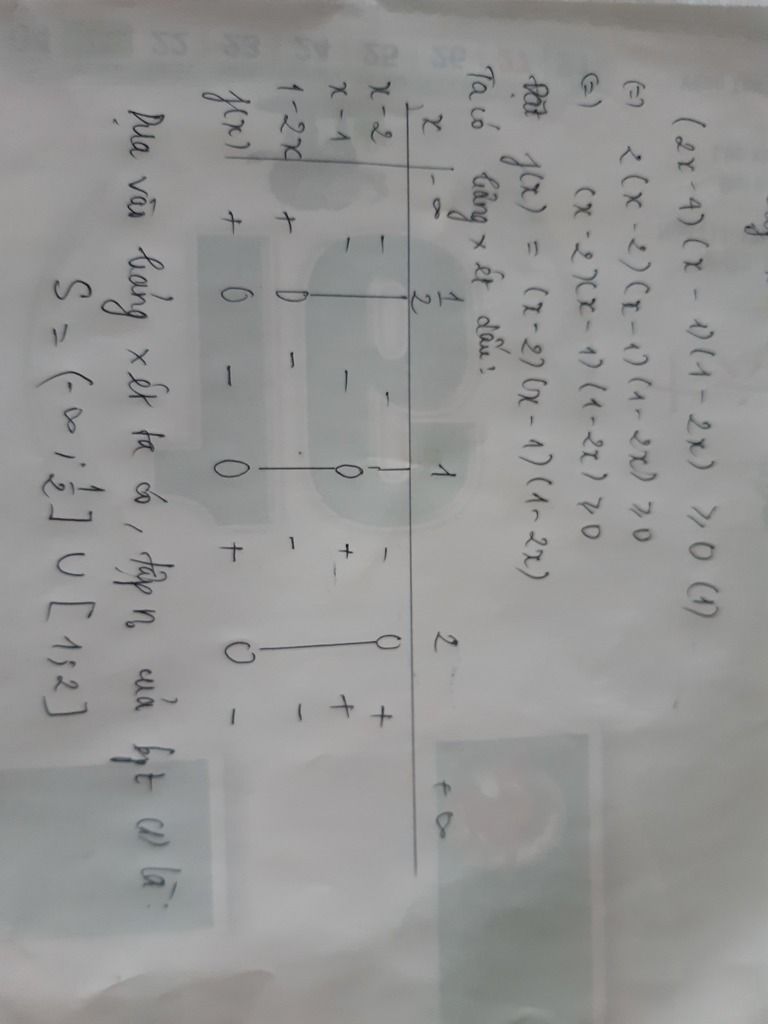 (2x-4)(x-1)(1-2x) ⩾ 0 (1)
(=) 2(x-2)(x-1)(1-2x) ⩾ 0
(=) (x-2)(x-1)(1-2x) ⩾ 0
Đặt f(x) = (x-2)(x-1)(1-2x)
Ta có bảng xét dấu:
x -∞ 1/2 1 2 +∞
x-2 - - - 0 +
x-1 - - 0 + +
1-2x + 0 - - -
f(x) + 0 - 0 + 0 -
Dựa vào bảng xét ta có, tập n₀ của bpt (1) là:
S = (-∞; 1/2] ∪ [1; 2]
22 23 24 25 26